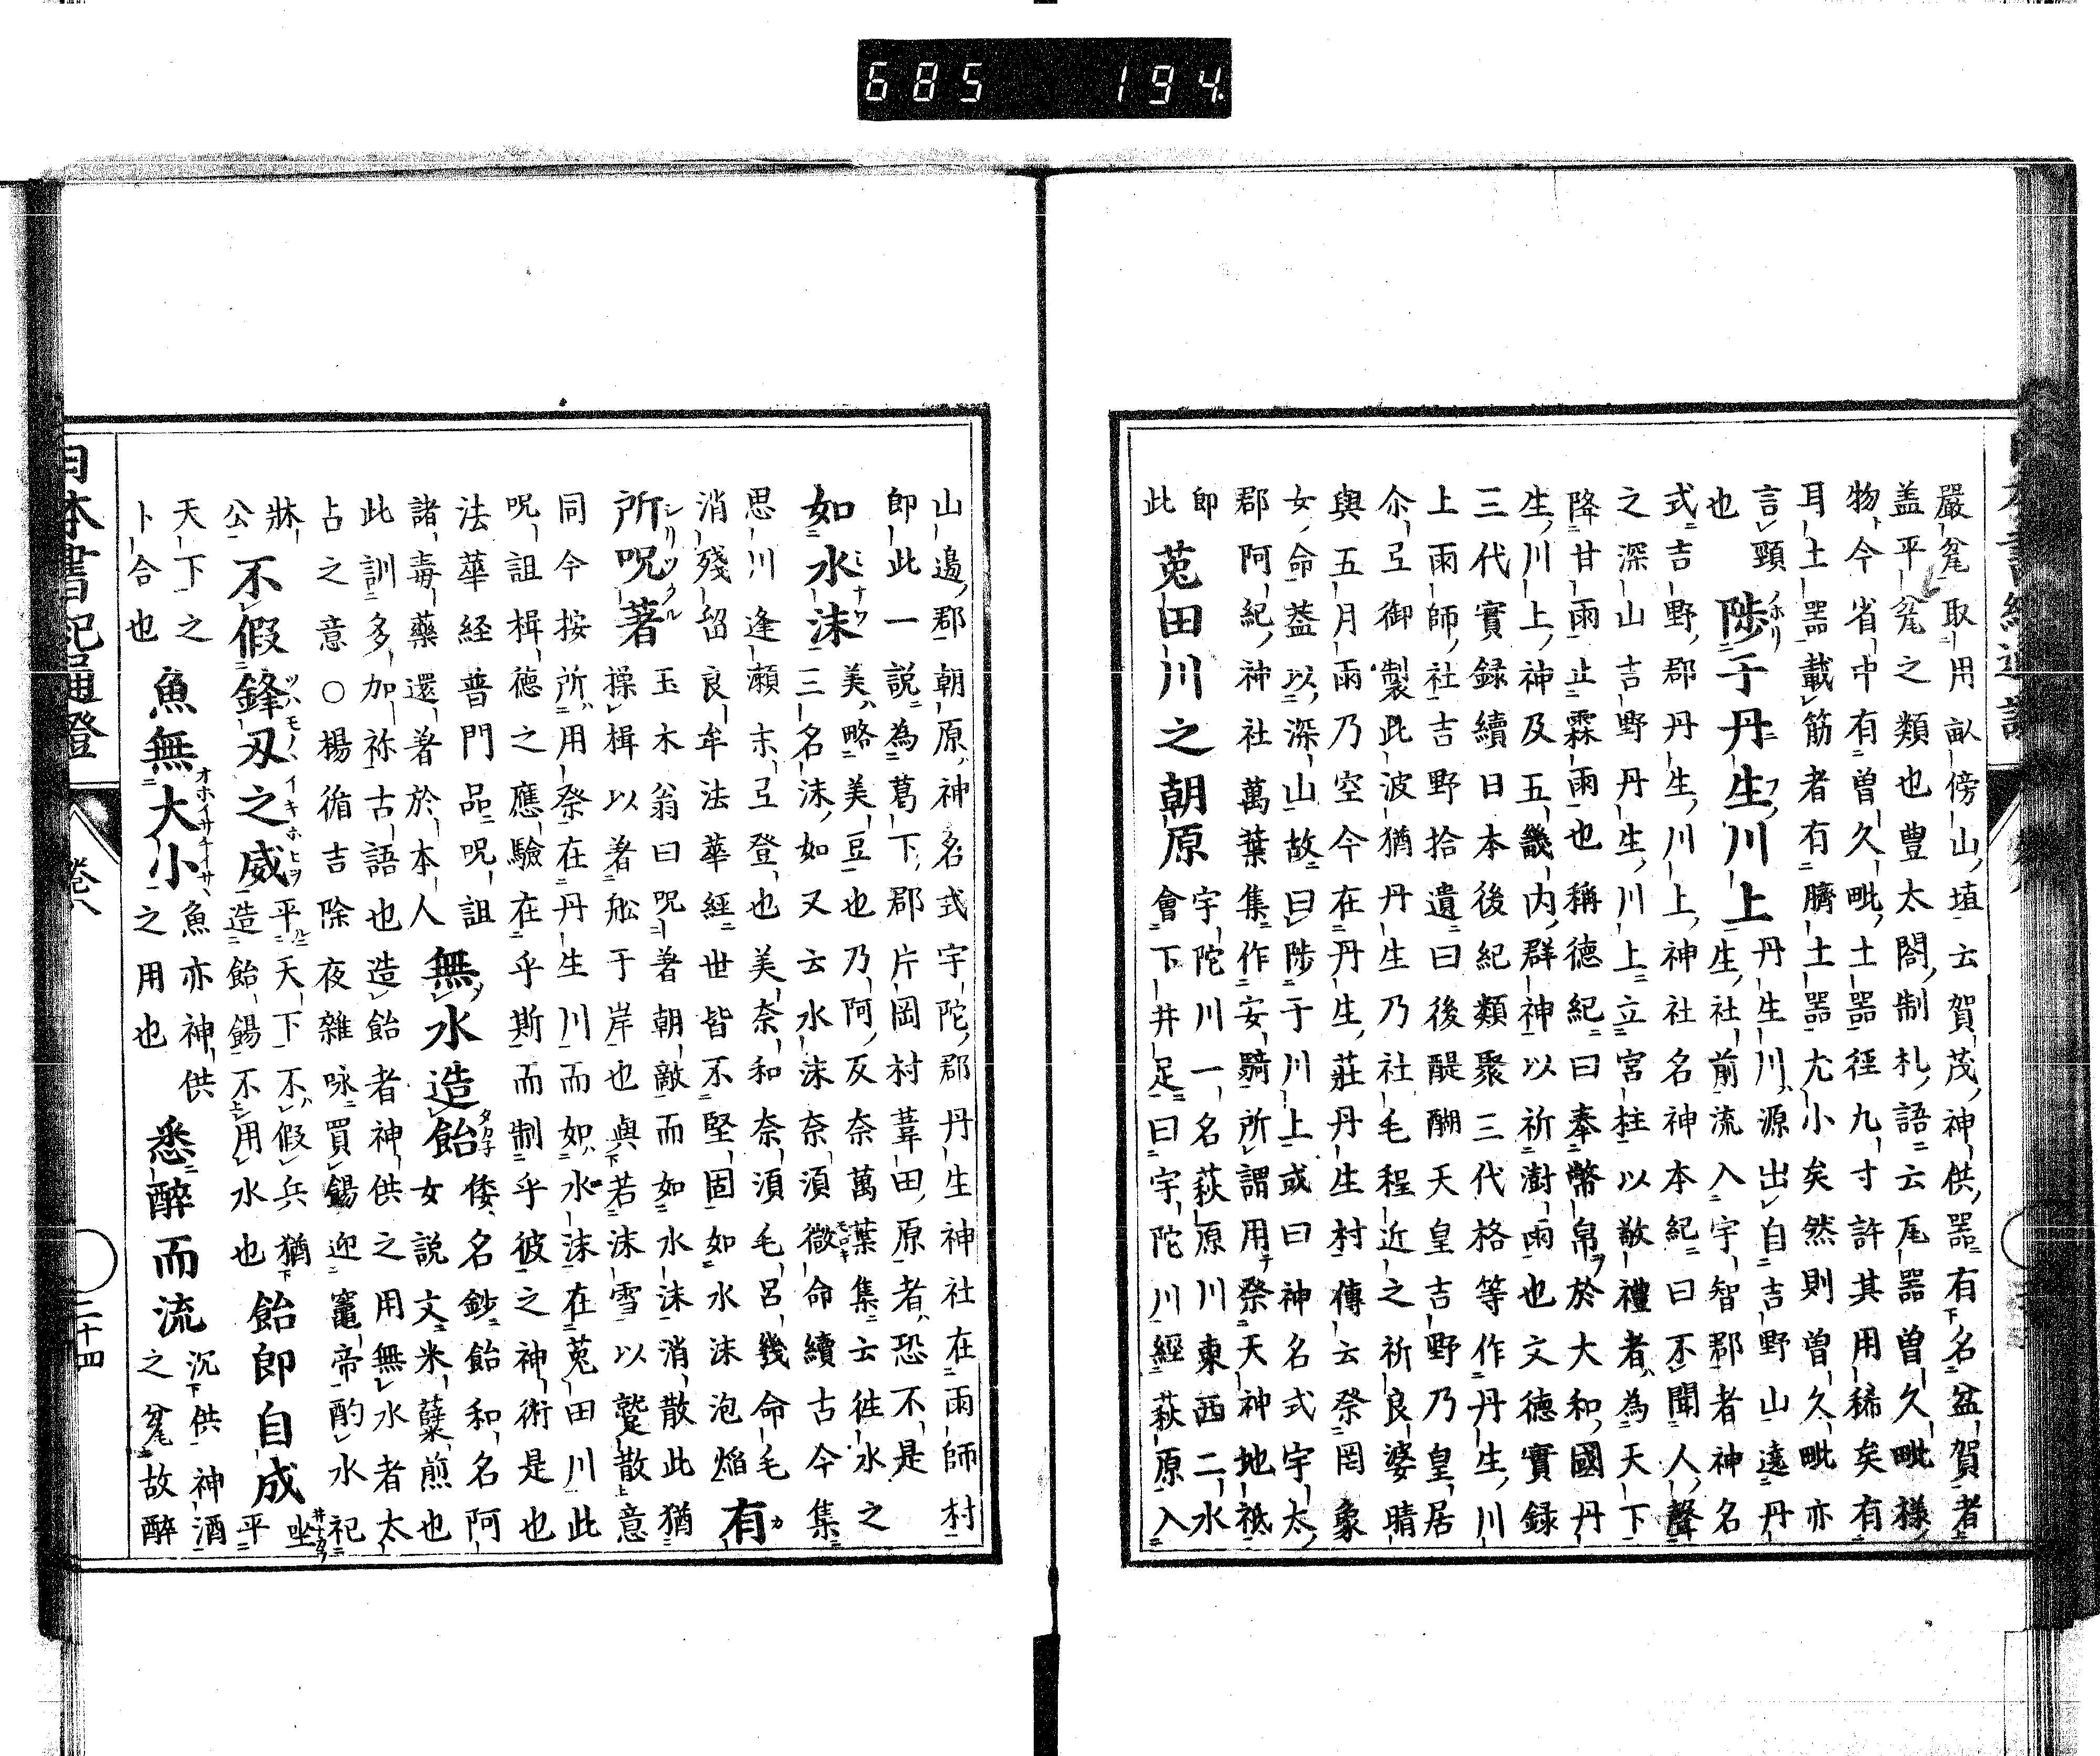 嚴瓮取用畝傍山埴云賀茂神供器有名盆賀者
盖平瓮之類也豊太閤制札語云瓦器曽久毗様
物今省中有曽久毗土器径九寸許其用稀矣有
耳土器載筋者有臍土器尤小矣然則曽久毗亦
言頸
也
陟于丹生川上
丹生川源出自吉野山遠丹
生社前流入宇智郡者神名
式吉野郡丹生川上神社名神本紀曰不聞人聲
之深山吉野丹生川上立宮柱以敬禮者為天下
降甘雨止霖雨也稱德紀曰奉幣帛於大和國丹
生川上神及五畿内群神以祈澍雨也文德實録
三代實録續日本後紀類聚三代格等作丹生川
上雨師社吉野拾遺曰後醍醐天皇吉野乃皇居
尒弖御製此波猶丹生乃社毛程近之祈良婆晴
與五月雨乃空今在丹生莊丹生村傳云祭罔象
女命葢以深山故曰陟于川上或曰神名式宇太
郡阿紀神社萬葉集作安騎所謂用祭天神地祇
即
此
菟田川之朝原
宇陀川一名萩原川東西二水
會下井足曰宇陀川經萩原入
山邊郡朝原神名式宇陀郡丹生神社在雨師村
即此一説為葛下郡片岡村葦田原者恐不是
如水沫
美略美豆也乃阿反奈萬葉集云徃水之
三名沫如又云水沫奈湏微命續古今集
思川逢瀬末弖登也美奈和奈湏毛呂幾命毛
消殘留良牟法華經世皆不堅固如水沫泡焔
有
所呪著
玉木翁曰呪著朝敵而如水沫消散此猶
操楫以著舩于岸也與若沫雪以蹵散意
同今按所用祭在丹生川而如水沫在菟田川此
呪詛楫德之應驗在乎斯而制乎彼之神術是也
法華経普門品呪詛
諸毒藥還著於本人
無水造飴
倭名鈔飴和名阿
女説文米糵煎也
此訓多加祢古語也造飴者神供之用無水者太
占之意○楊循吉除夜雜咏買餳迎竈帝酌水祀
牀
公
不假鋒刃之威
平天下不假兵猶
造飴餳不用水也
飴即自成
坐
平
天下之
卜合也
魚無大小
魚亦神供
之用也
悉醉而流
沉供神酒
之瓮故醉
日本書紀通證
卷八
二十四
685 194